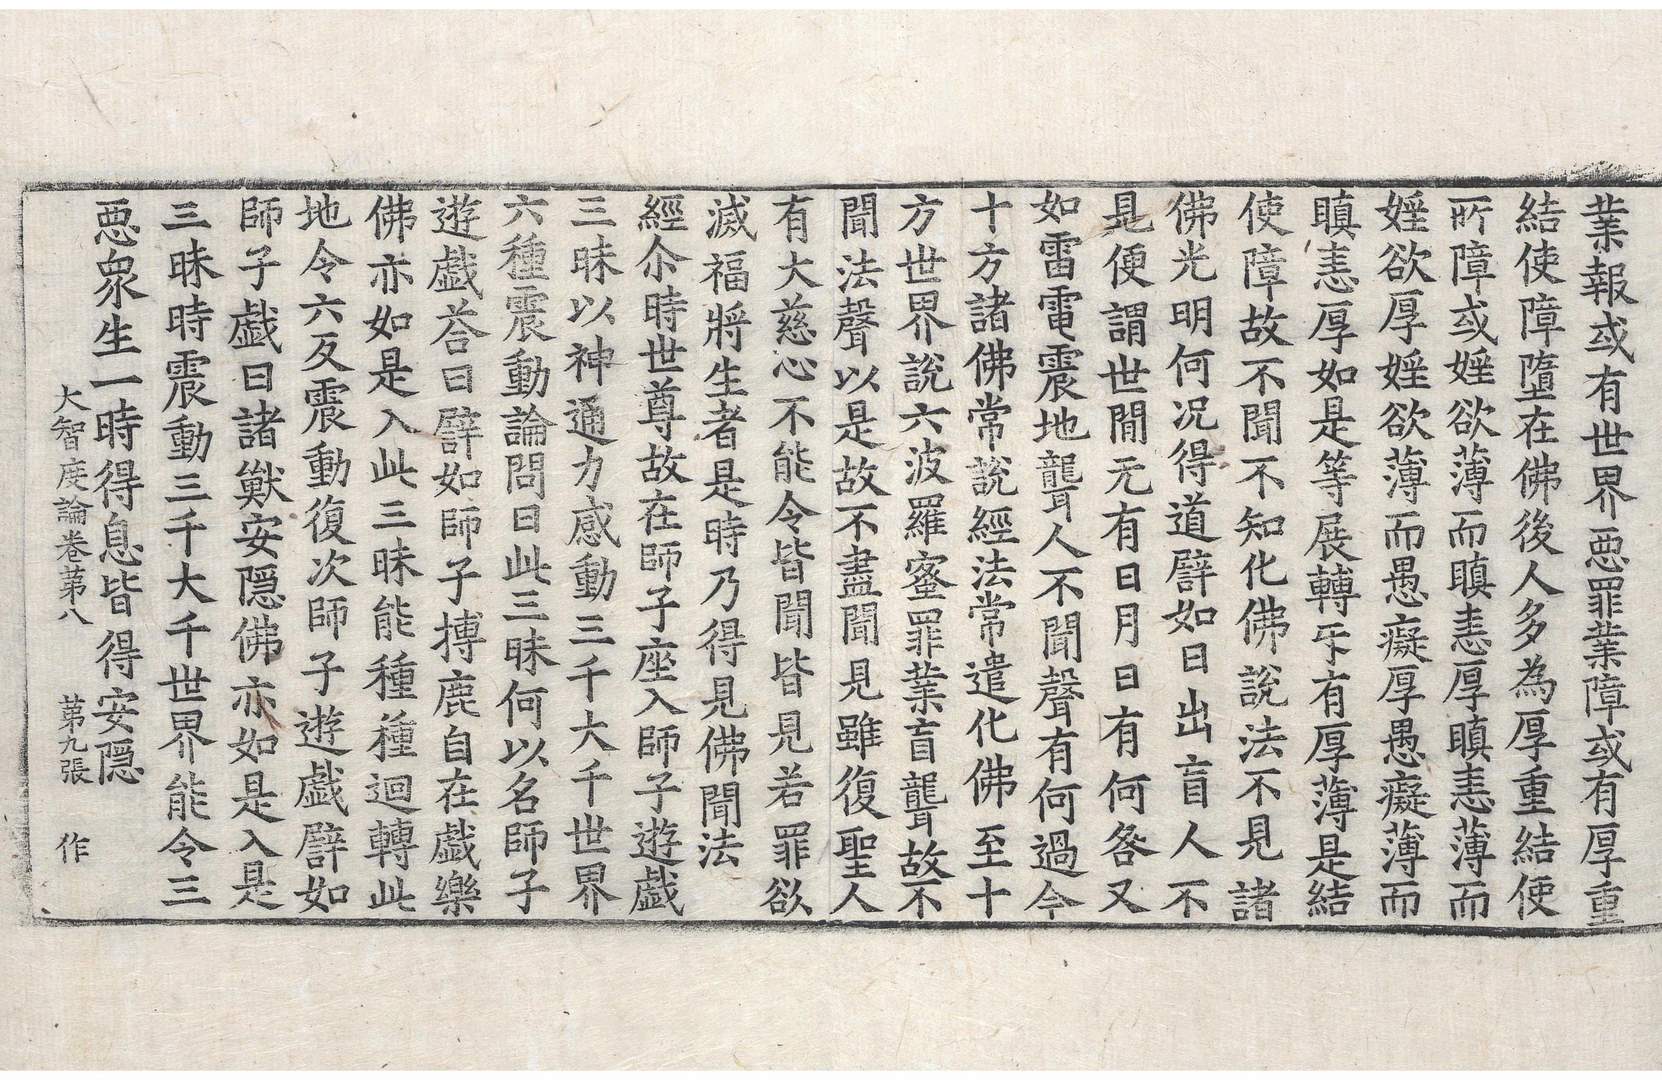 業報或有世界惡罪業障或有厚重
結使障墮在佛後人多為厚重結使
所障或婬欲薄而瞋恚厚瞋恚薄而
婬欲厚婬欲薄而愚癡厚愚癡薄而
瞋恚厚如是等展轉互有厚薄是結
使障故不聞不知化佛說法不見諸
佛光明何況得道譬如日出盲人不
見便謂世間无有日月日有何咎又
如雷電震地聾人不聞聲有何過今
十方諸佛常說經法常遣化佛至十
方世界說六波羅蜜罪業盲聾故不
聞法聲以是故不盡聞見雖復聖人
有大慈心不能令皆聞皆見若罪欲
滅福將生者是時乃得見佛聞法
經尒時世尊故在師子座入師子遊戲
三昧以神通力感動三千大千世界
六種震動論問曰此三昧何以名師子
遊戲荅曰譬如師子搏鹿自在戲樂
佛亦如是入此三昧能種種迴轉此
地令六反震動復次師子遊戲譬如
師子戲日諸獸安隱佛亦如是入是
三昧時震動三千大千世界能令三
惡眾生一時得息皆得安隱
大智度論卷第八 第九張 作